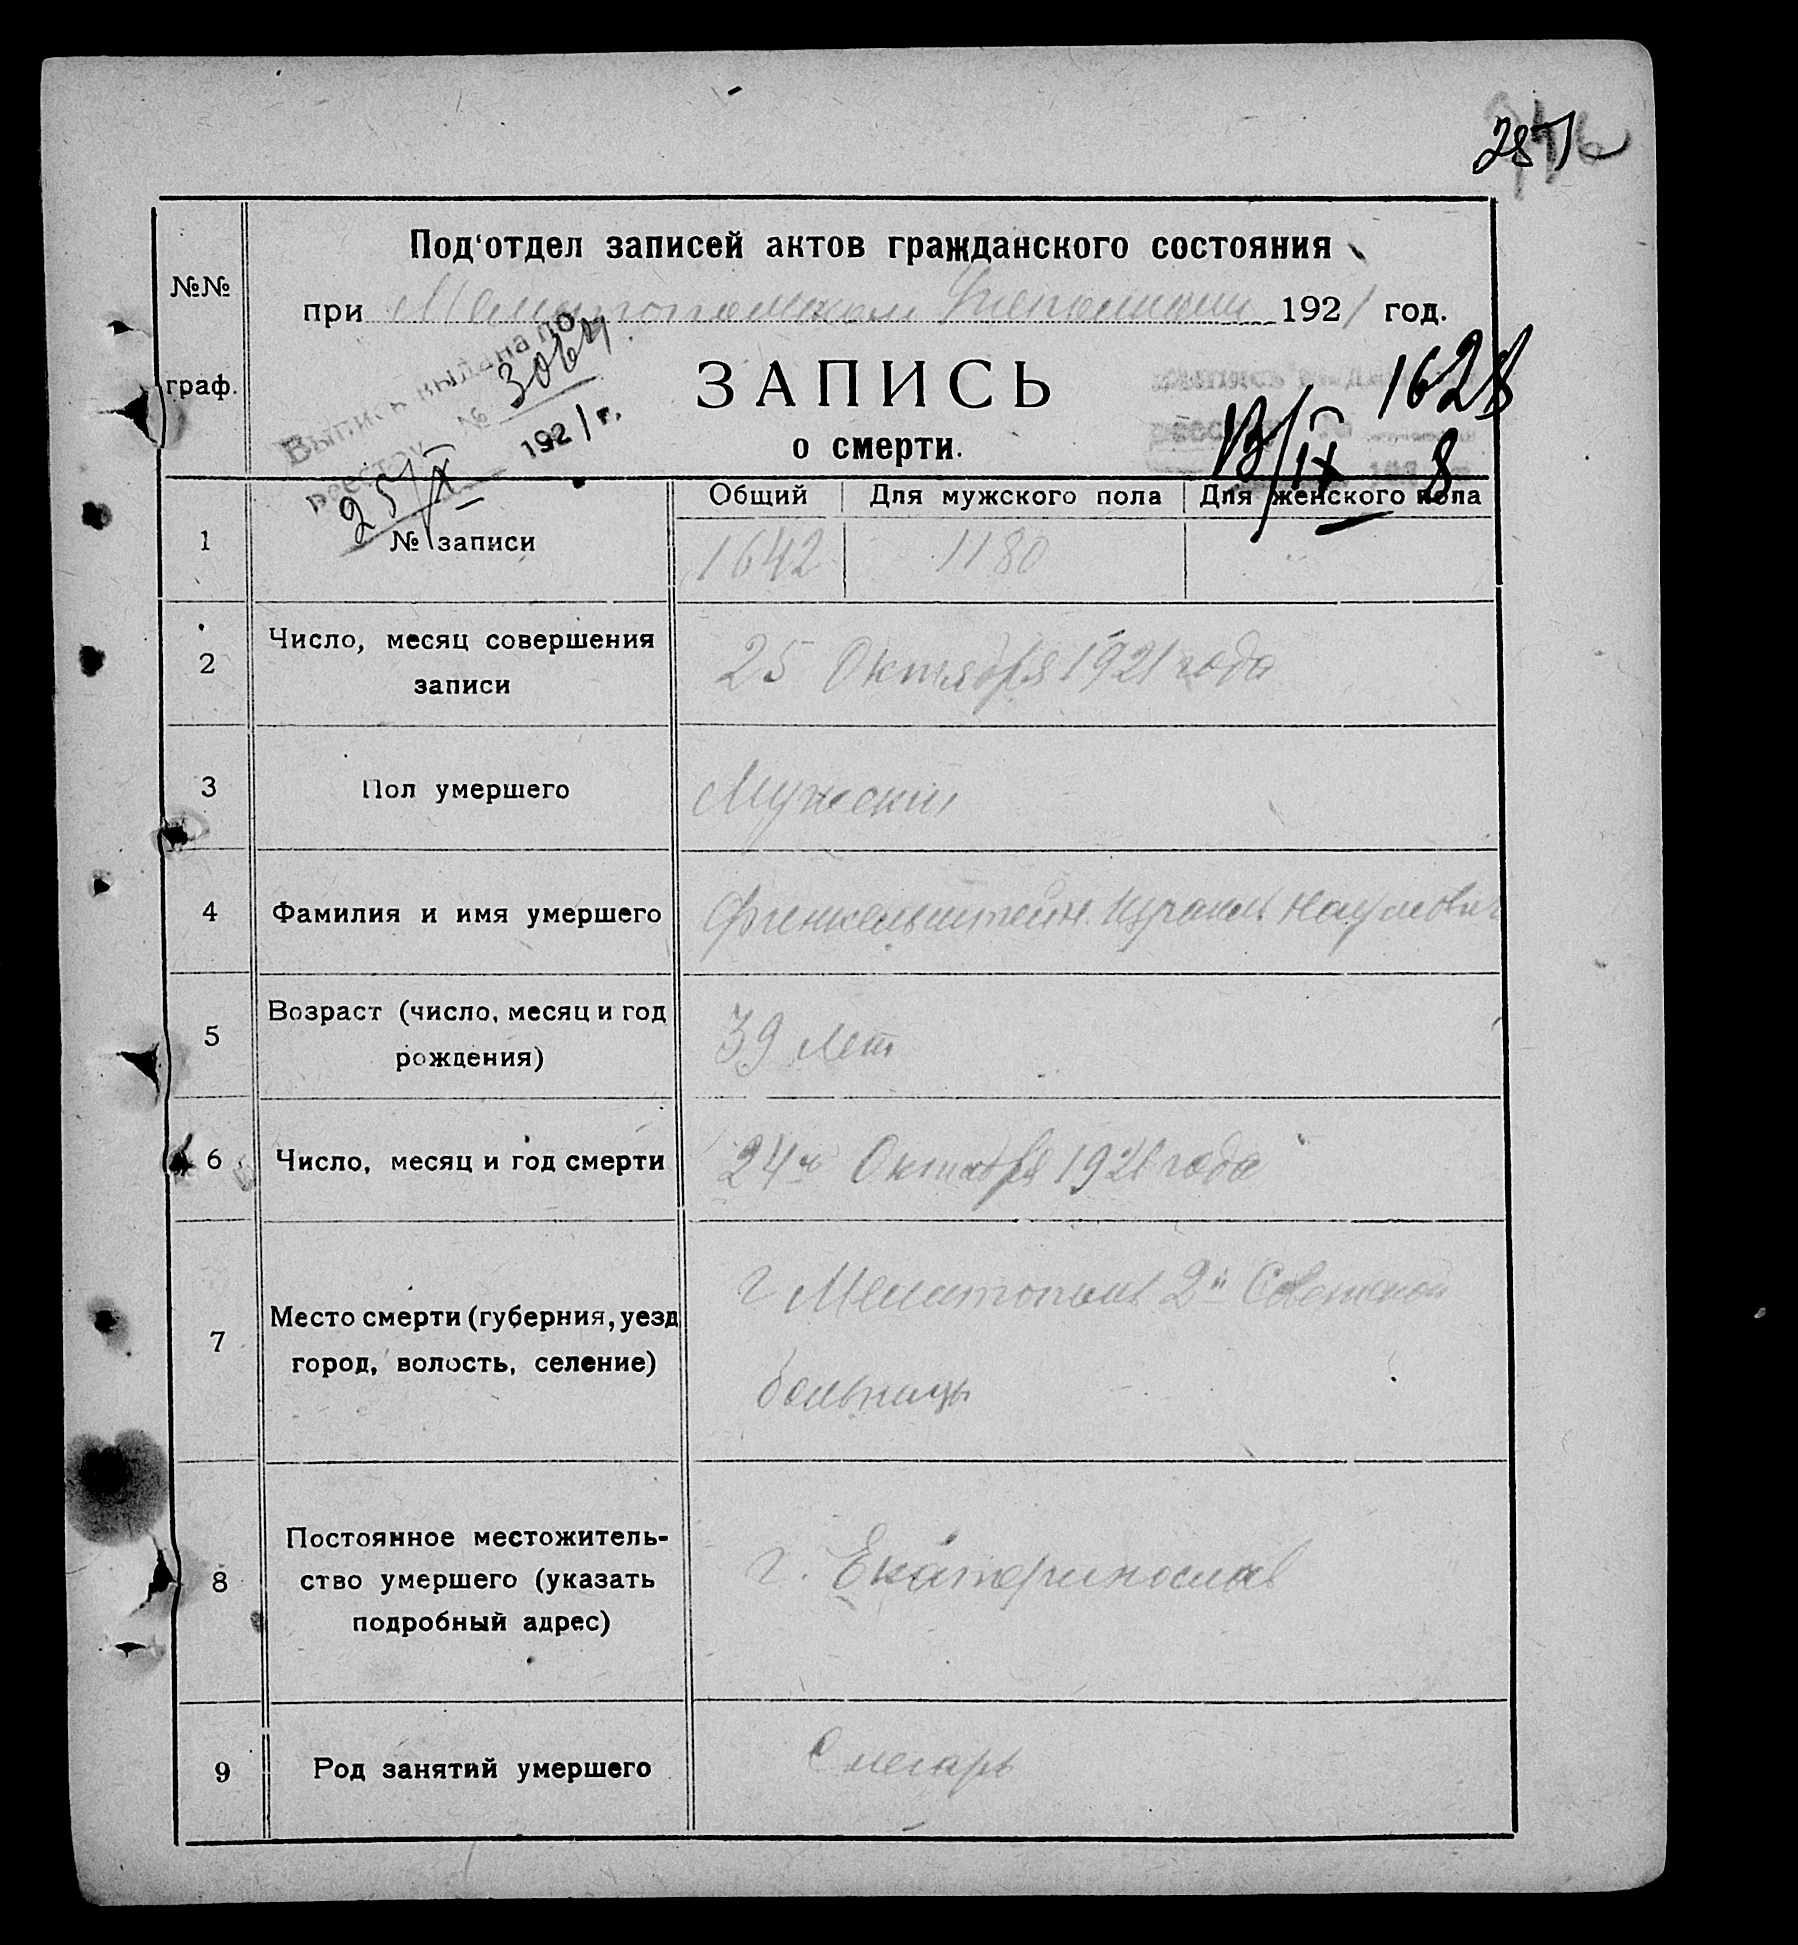 2871
Под'отдел записей актов гражданского состояния
№№
при Мелитопольском Уисполкоме 1921 год.
граф.
ЗАПИСЬ
о смерти.
Выпись выдана по
реестру № 3064
25/X 1921 г.
1628
13/IX 8
Общий Для мужского пола Для женского пола
1 № записи 1642 1180
2 Число, месяц совершения
записи
25 Октября 1921 года
3 Пол умершего Мужской
4 Фамилия и имя умершего Финкельштейн Израиль Наумович
5 Возраст (число, месяц и год
рождения)
39 лет
6 Число, месяц и год смерти 24го Октября 1921 года
7 Место смерти (губерния, уезд
город, волость, селение)
г Мелитополь 2й Советской
больницы
8 Постоянное местожитель-
ство умершего (указать
подробный адрес)
г. Екатеринослав
9 Род занятий умершего Слесарь